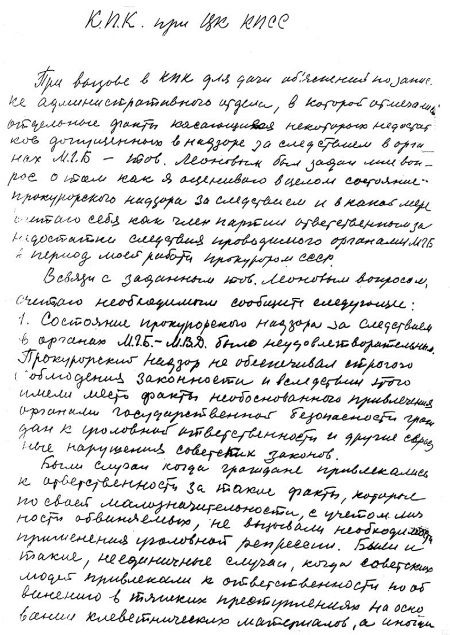 К.П.К. при ЦК КПСС
При вызове в КПК для дачи об'яснения по запис-
ке административного отдела, в которой отмечались
отдельные факты касающиеся некоторых недостат
ков допущенных в надзоре за следствием в орга-
нах М.Г.Б – тов. Леоновым был задан мне воп-
рос о том как я оцениваю в целом состояние
прокурорского надзора за следствием и в какой мере
считаю себя как член партии ответственным за
недостатки следствия проводимого органами МГБ
в период моей работы прокурором СССР.
В связи с заданным тов. Леоновым вопросом,
считаю необходимым сообщить следующее:
1. Состояние прокурорского надзора за следствием
в органах М.Г.Б–М.В.Д. было неудовлетворительным.
Прокурорский надзор не обеспечивал строгого
соблюдения законности и вследствии этого
имели место факты необоснованного привлечения
органами государственной безопасности граж
дан к уголовной ответственности и другие
ные нарушения советских законов.
Были случаи когда граждане привлекались
к ответственности за такие факты, которые
по своей малозначительности, с учетом лич
ности обвиняемых, не вызывали необходимости
применения уголовной репрессии. Были и
такие, неединичные случаи, когда советских
людей привлекали к ответственности по об
винению в тяжких преступлениях на осно
вании клеветнических материалов, а иногда